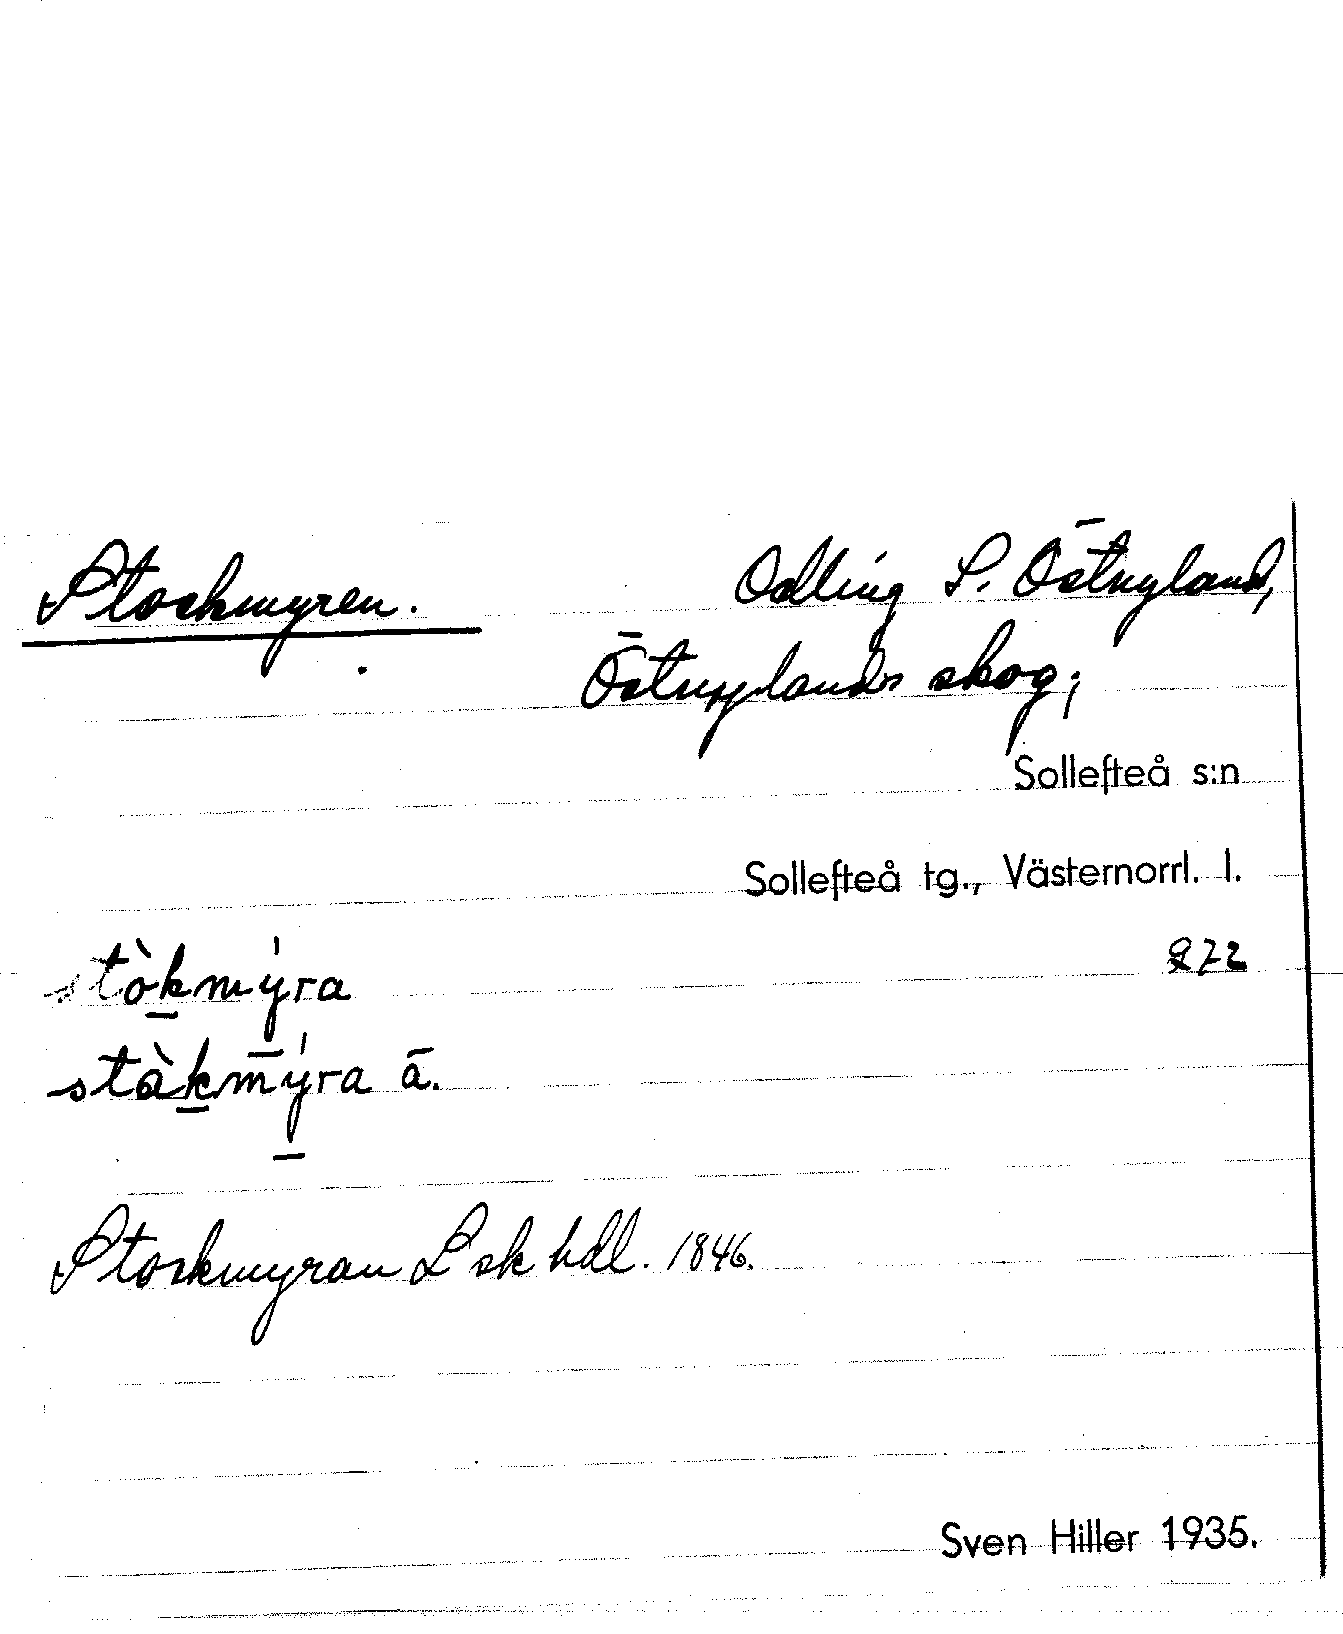 Stockmyren. Odling S. Östnyland,
Östnylands skog;
Sollefteå s:n
Sollefteå tg., Västernorrl. l.
272
stòkmýra
stàkmýra ā.
Stockmyran L sk hdl. 1846.
Sven Hiller 1935.